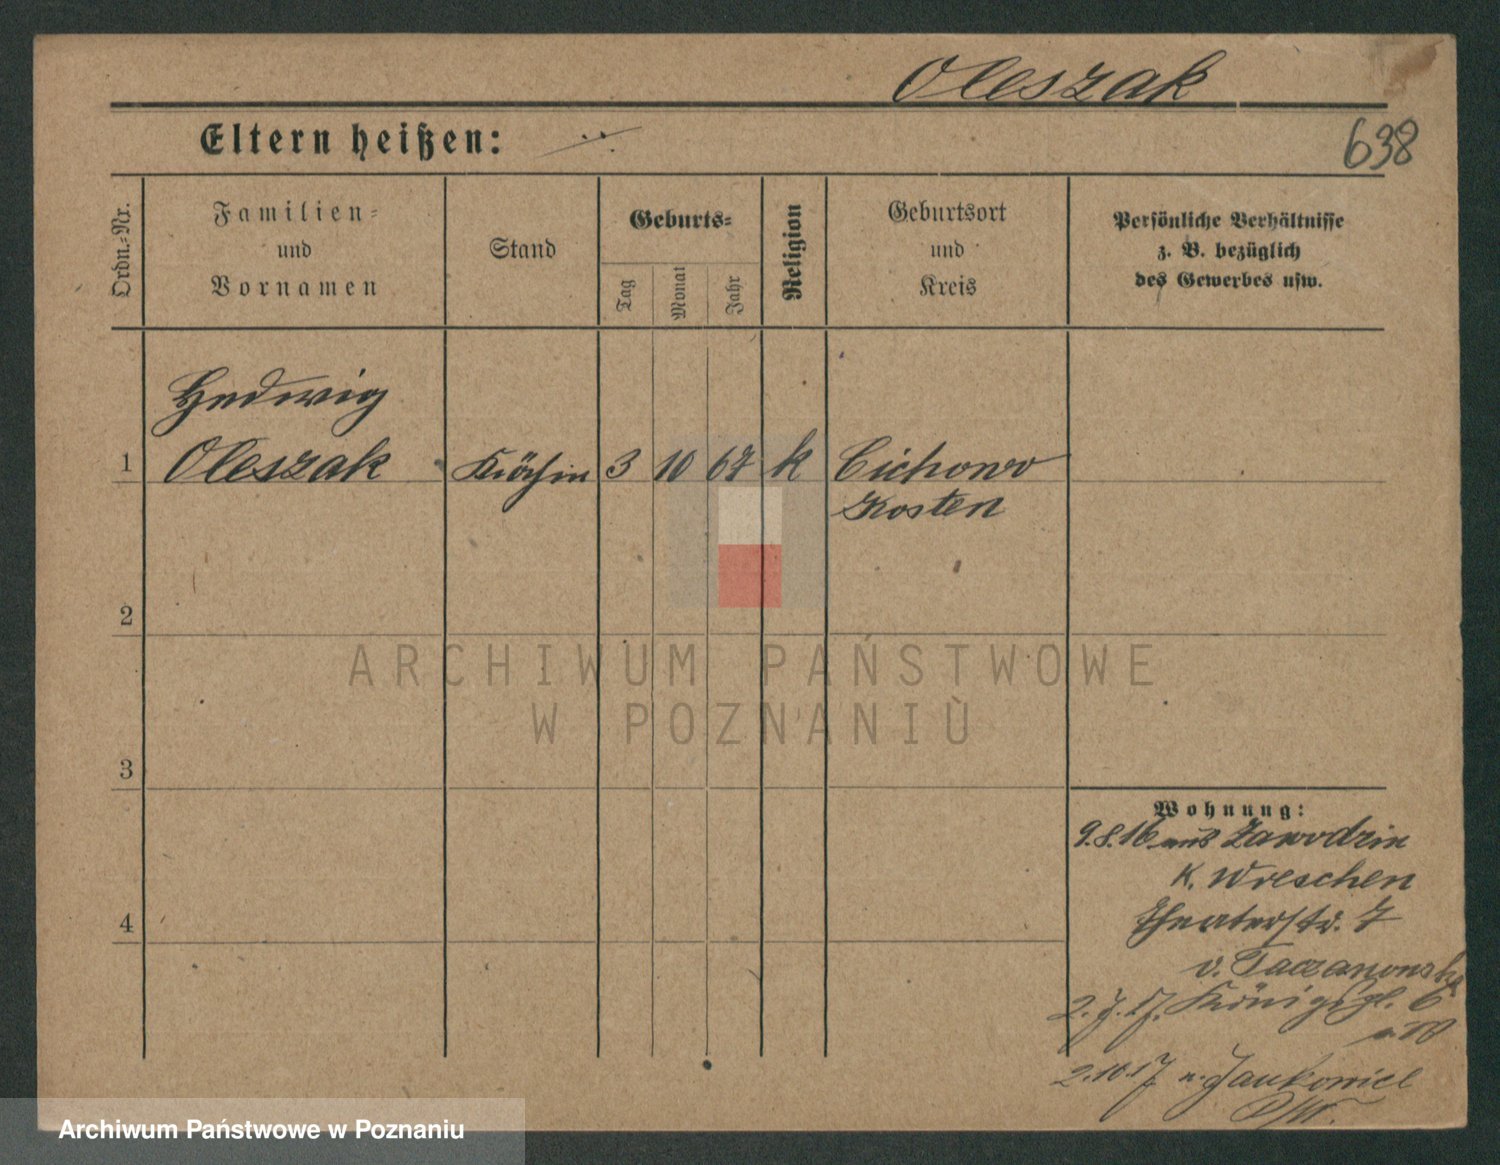 Oleszak
Eltern heißen:
638
Ordn.-Nr.
Familien-
und
Vornamen
Stand
Geburts-
Tag
Monat
Jahr
Religion
Geburtsort
und
Kreis
Persönliche Verhältnisse
z. B. bezüglich
des Gewerbes usw.
Hedwig
1 Oleszak Köchin 3 10 67 k Cichowo
Kosten
2
ARCHIWUM PAŃSTWOWE
W POZNANIU
3
Wohnung:
9.8.16 aus Zawodzin
K. Wreschen
4
Theaterstr. 7
v. Taczanowska
2.7.17. Königspl. 6
2.10.17 n. Jankowice
Archiwum Państwowe w Poznaniu